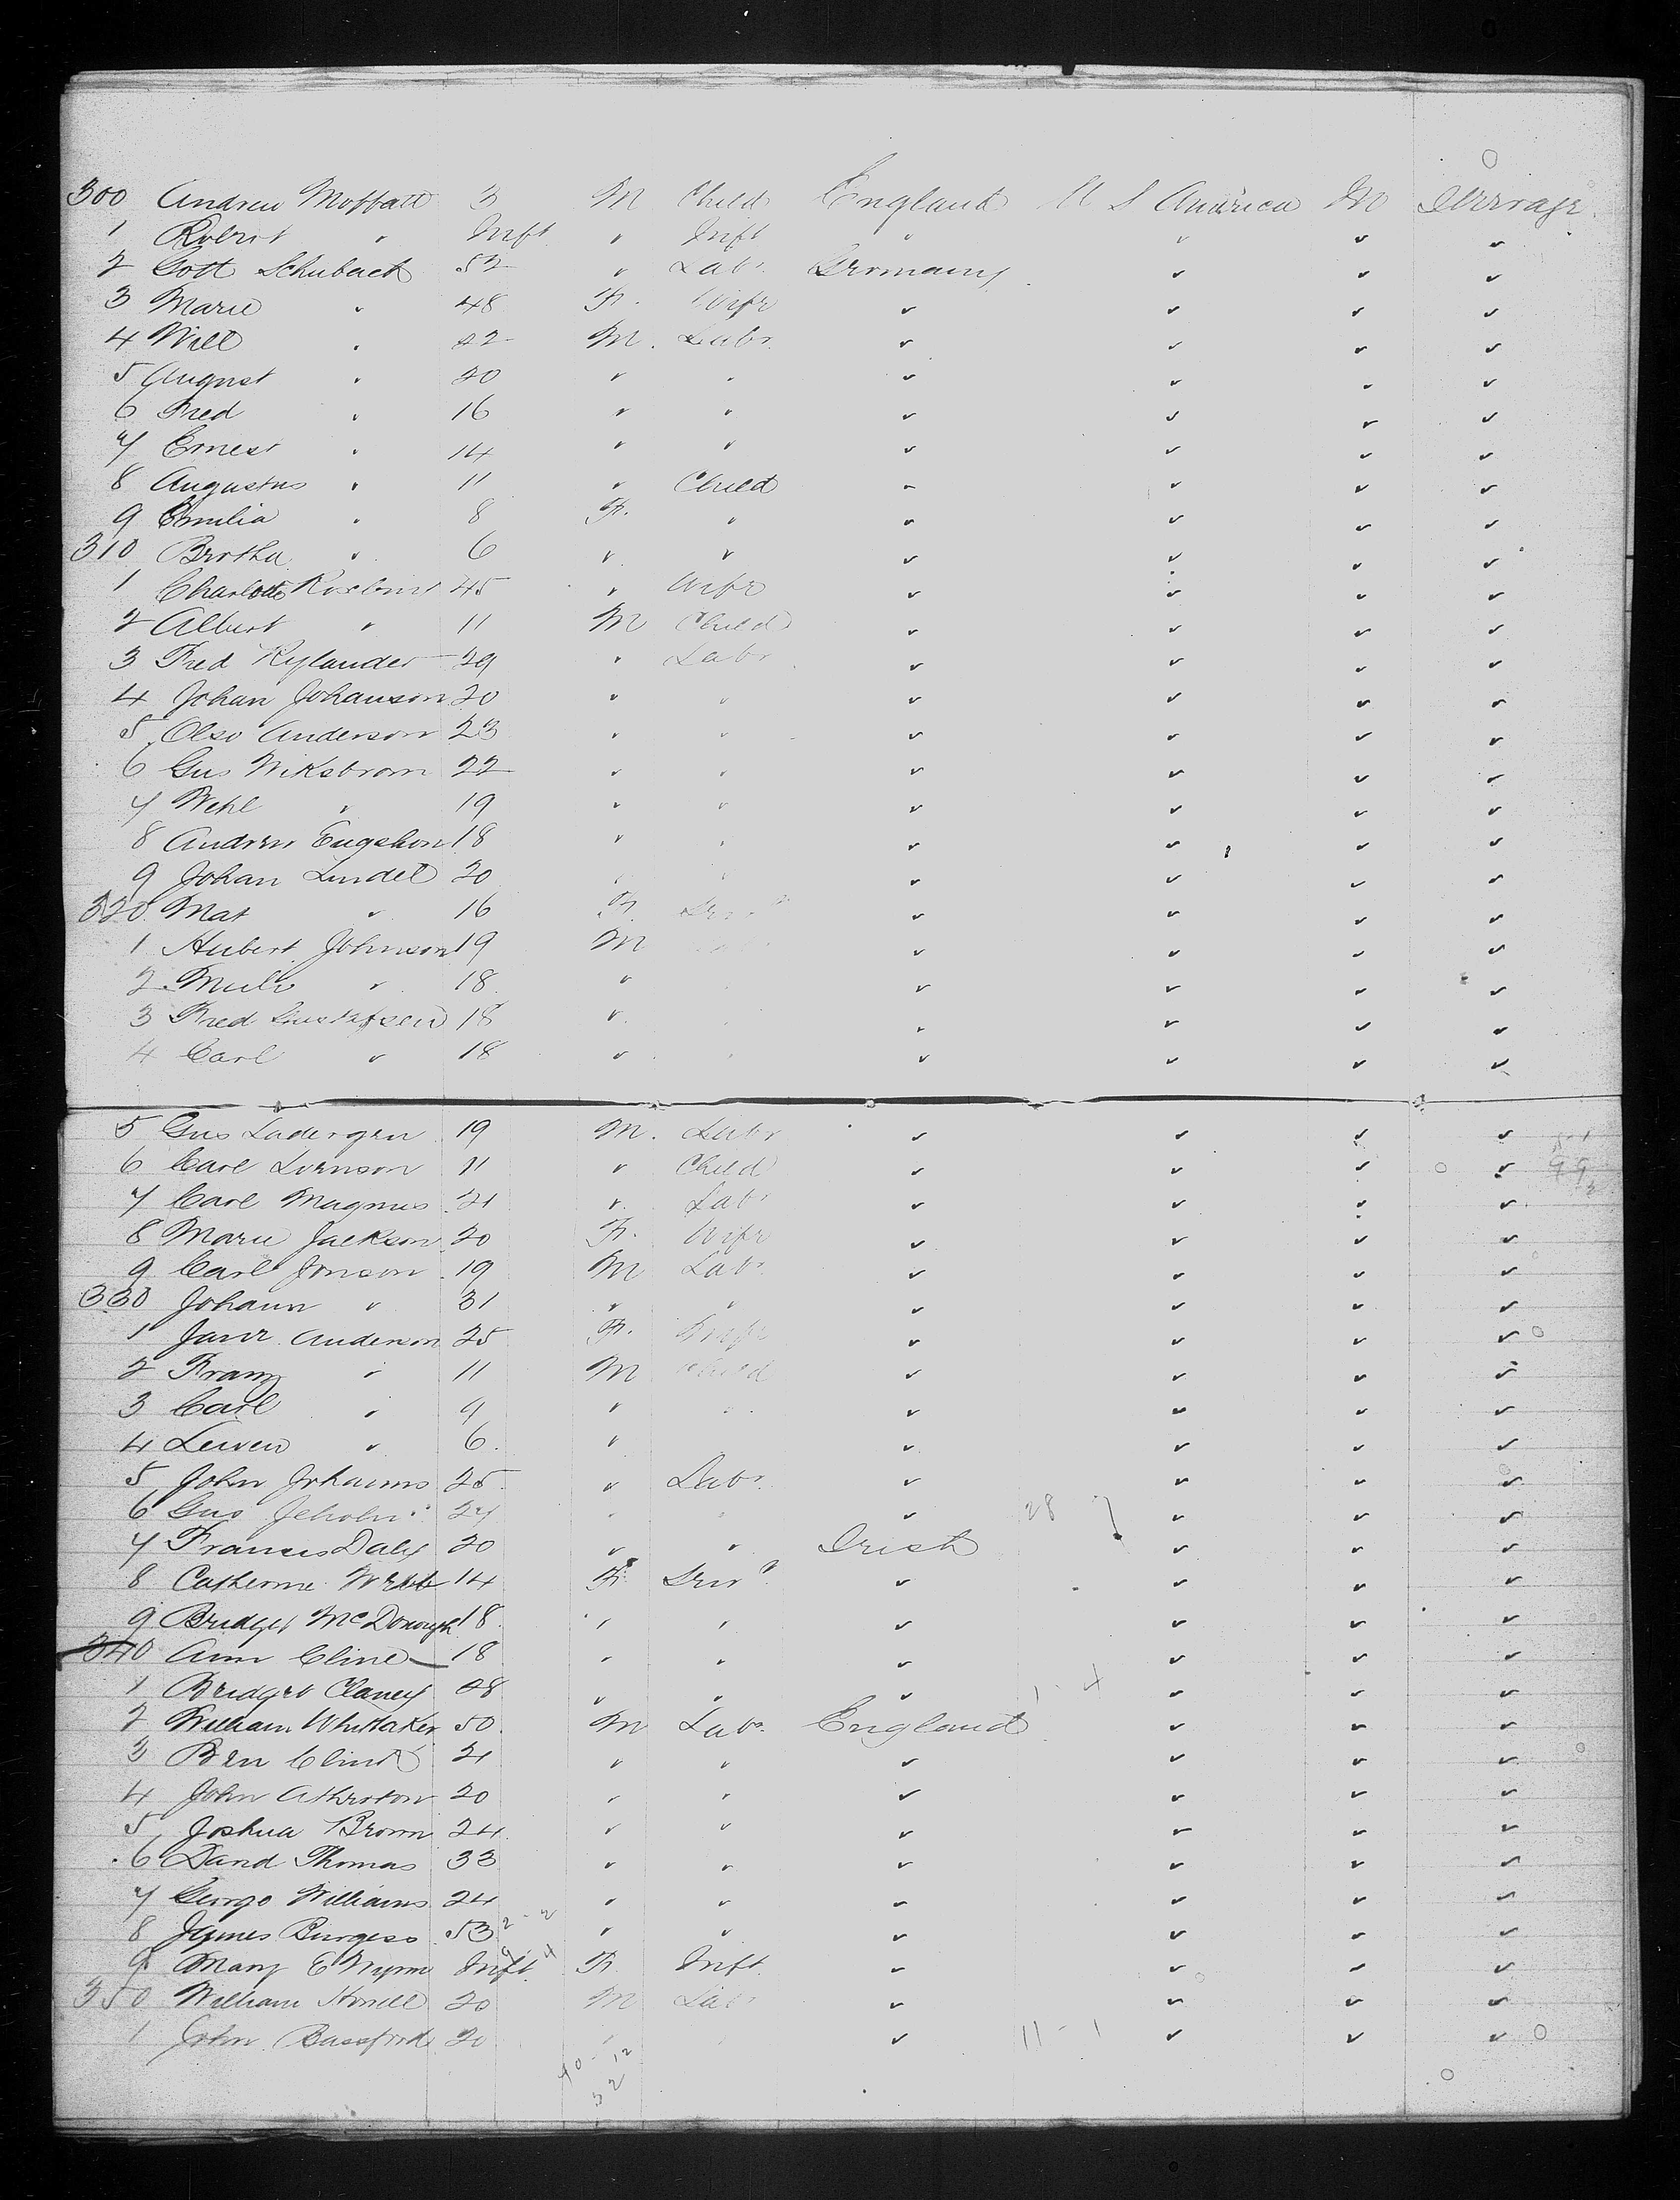 300 Andrew Moffatt 3 M Child England U S America No Steerage
1 Robert " Inft " Inft " " " "
2 Gott Schuback 52 " Labr Germany " " "
3 Marie " 48 F. Wife " " " "
4 Will " 22 M. Labr " " " "
5 August " 20 " " " " " "
6 Fred " 16 " " " " " "
7 Ernest " 14 " " " " " "
8 Augustus " 11 " Child " " " "
9 Emilia " 8 F. " " " " "
310 Bertha " 6 " " " " " "
1 Charlotte 45 " Wife " " " "
2 Albert " 11 M Child " " " "
3 Fred Rylander 29 " Labr " " " "
4 Johan Johanson 20 " " " " " "
5 Olso Anderson 23 " " " " " "
6 Gus Wikstrom 22 " " " " " "
7 Wehl " 19 " " " " " "
8 Andrew 18 " " " " " "
9 Johan Lindel 20 " " " " " "
320 Mat " 16 F. Servt " " " "
1 Hubert Johnson 19 M " " " "
2 " 18 " " " " " "
3 Fred Gustafsen 18 " " " " " "
4 Carl " 18 " " " " " "
5 Gus Ladergren 19 M. Labr " " " "
6 Carl 11 " Child " " " "
7 Carl Magnus 21 " Labr " " " "
8 Marie Jackson 20 F. Wife " " " "
9 Carl Jonson 19 M Labr " " " "
330 Johann " 31 " " " " " "
1 Jane Anderson 25 F. Wife " " " "
2 Franz " 11 M Child " " " "
3 Carl " 9 " " " " " "
4 " 6 " " " " "
5 John Johanns 25 " Labr " " " "
6 Gus 27 " " " 28 " " "
7 Francis Daly 20 " " Irish " " "
8 Catherine Webb 14 F. Servt " " " "
9 Bridget McDonough 18 " " " " " "
340 Ann Cline 18 " " " " " "
1 Bridget Claney 28 " " " 1 - 4 " " "
2 William Whittaker 50 M Labr England " " "
3 Ben Clint 21 " " " " " "
4 John Atherton 20 " " " " " "
5 Joshua Brown 24 " " " " " "
6 David Thomas 33 " " " " " "
7 George Williams 24 " " " " " "
8 James Burgess 53 " " " " " "
9 Mary E Wynn Inft F. Inft " " " "
350 William Howell 20 M Labr " " " "
1 John Bassford 20 " " " 11 - 1 " " "